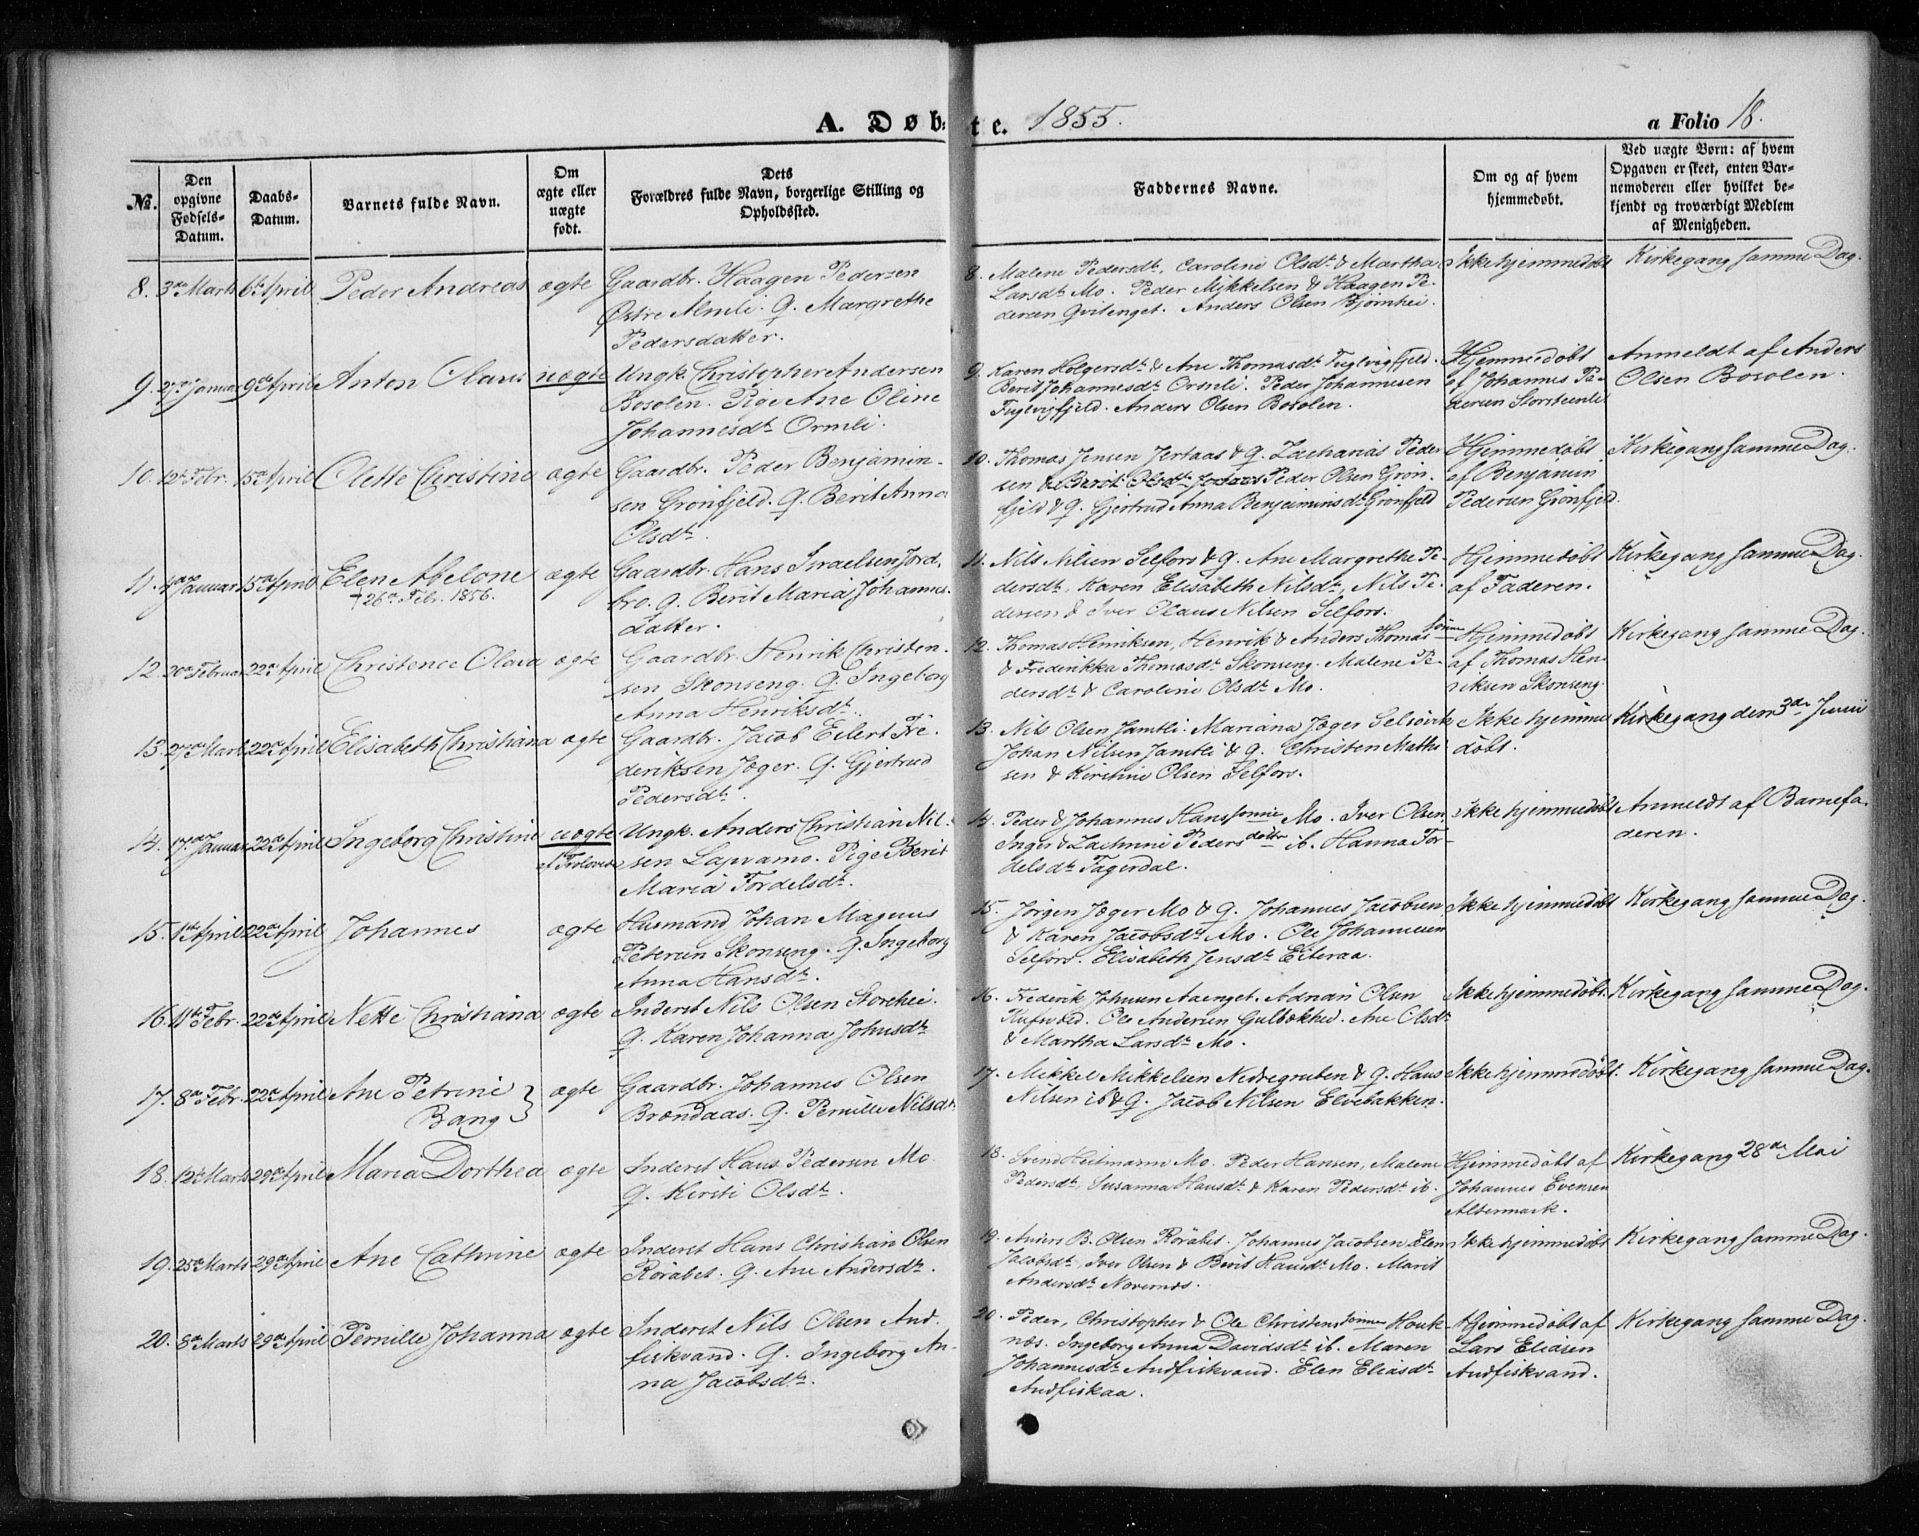 A. Døbte. 1855.
a Folio 18.
№.
Den opgivne Fødsels-Datum.
Daabs-Datum.
Barnets fulde Navn.
Om ægte eller uægte født.
Dets Forældres fulde Navn, borgerlige Stilling og Opholdssted.
Faddernes Navne.
Om og af hvem hjemmedøbt.
Ved uægte Børn: af hvem Opgaven er skeet, enten Barnemoderen eller hvilket bekjendt og troværdigt Medlem af Menigheden.
8. 3de Marts 6te April Peder Andreas ægte Gaardbr. Haagen Pedersen
Østre Almli. Q. Margrethe
Pedersdatter.
8. Malene Pedersdt, Caroline Olsdt & Martha
Larsdt Mo. Peder Mikkelsen & Haagen Pe-
dersen Qvitenget. Anders Olsen Bjørnhei.
Ikke hjemmedøbt
Kirkegang samme Dag.
9. 27de Januar 9de April Anton Olaus uægte Ungk. Christopher Andersen
Bosolen. Pige Ane Oline
Johannesdt Ormli.
9. Karen Holgersdt & Ane Thomasdt Fuglvigfjeld.
Berit Johannesdt Ormli. Peder Johannesen
Fuglvigfjeld. Anders Olsen Bosolen.
Hjemmedøbt
af Johannes Pe-
dersen Storsteenli
Anmeldt af Anders
Olsen Bosolen.
10. 12te Febr. 15de April Olette Christine ægte Gaardbr. Peder Benjamin-
sen Grønfjeld. Q. Berit Anna
Olsdt.
10. Thomas Jensen Jertaas & Q. Zacharias Peder
sen & Berit Olsdt Jertaas Peder Olsen Grøn-
fjeld & Q. Gjertrud Anna Benjaminsdt Grønfjeld
Hjemmedøbt
af Benjamin
Pedersen Grønfjeld.
Kirkegang samme Dag.
11. 4de Januar 15de April Elen Abelone ægte Gaardbr. Hans Israelsen Jord-
† 26de Febr. 1856.
bro. Q. Berit Maria Johannes-
datter.
11. Nils Nilsen Selfors & Q. Ane Margrethe Pe-
dersdt, Karen Elisabeth Nilsdt, Nils Pe-
dersen & Iver Olaus Nilsen Selfors.
Hjemmedøbt
af Faderen.
Kirkegang samme Dag.
12. 20de Februar 22de April Christence Olava ægte Gaardbr. Henrik Christen-
sen Skonseng. Q. Ingeborg
Anna Henriksdt.
12. Thomas Henriksen, Henrik & Anders Thomas sønner
& Frederikka Thomasdt Skonseng. Malene Pe-
dersdt & Caroline Olsdt Mo.
Hjemmedøbt
af Thomas Hen
riksen Skonseng.
Kirkegang samme Dag.
13. 27de Marts 22de April Elisabeth Christiana ægte Gaardbr. Jacob Eilert Fre-
deriksen Jæger. Q. Gjertrud
Pedersdt.
13. Nils Olsen Jamtli. Mariana Jæger Selsøvik
Johan Nilsen Jamtli & Q. Christen Mathi
sen & Kirstine Olsen Selfors.
Ikke hjemme
døbt.
Kirkegang den 3de Junii
14. 17de Januar 22de April Ingeborg Christine uægte Ungk. Anders Christian Nil-
af Trolovede
sen Lapvamo. Pige Berit
Maria Tordelsdt.
14. Peder & Johannes Hanssønner Mo. Iver Olsen
Inger & Zachrine Peders døttre ib. Hanna Tor-
delsdt Fagerdal.
Ikke hjemmedøbt
Anmeldt af Barnefa-
deren.
15. 1ste April 22de April Johannes ægte Husmand Johan Magnus
Petersen Skonseng. Q. Ingeborg
Anna Hansdt.
15. Jørgen Jæger Mo & Q. Johannes Jacobsen
& Karen Jacobsdt Mo. Ole Johannesen
Selfors. Elisabeth Jensdt Eiteraa.
Ikke hjemmedøbt
Kirkegang samme Dag.
16. 11te Febr. 22de April Nette Christiana ægte Inderst Nils Olsen Storehei.
Q. Karen Johanna Johnsdt
16. Frederik Johnsen Aaenget. Adrian Olsen
Ole Andersen Gulbækhei. Ane Olsdt
& Martha Larsdt Mo.
Ikke hjemmedøbt.
Kirkegang samme Dag.
17. 8de Febr. 22de April Ane Petrine
Bang } ægte Gaardbr. Johannes Olsen
Brændaas. Q. Pernille Nilsdt.
17. Mikkel Mikkelsen Nedregruben & Q. Hans
Nilsen ib & Q. Jacob Nilsen Elvebakken.
Ikke hjemmedøbt.
Kirkegang samme Dag.
18. 12te Marts 29de April Maria Dorthea ægte Inderst Hans Pedersen Mo.
Q. Kirsti Olsdt.
18. Svend Heitmann Mo. Peder Hansen, Malene
Pedersdt, Susanna Hansdt & Karen Pedersdt ib.
Hjemmedøbt af
Johannes Evensen
Altermark.
Kirkegang 28de Mai
19. 25de Marts 29de April Ane Cathrine ægte Inderst Hans Christian Olsen
Røråbet. Q. Ane Andersdt.
19. Anders B. Olsen Røråbet. Johannes Jacobsen Elen
Jacobsdt, Iver Olsen & Berit Hansdt Mo. Marit
Andersdt Novernæs.
Ikke hjemmedøbt
Kirkegang samme Dag.
20. 8de Marts 29de April Pernille Johanna ægte Inderst Nils Olsen And-
fiskvand. Q. Ingeborg An-
na Jacobsdt.
20. Peder, Christopher & Ole Christens sønner Hauk-
næs. Ingeborg Anna Davidsdt ib. Maren
Johannesdt Andfiskvand. Elen Eliasdt
Andfiskaa.
Hjemmedøbt af
Lars Eliasen
Andfiskvand.
Kirkegang samme Dag.